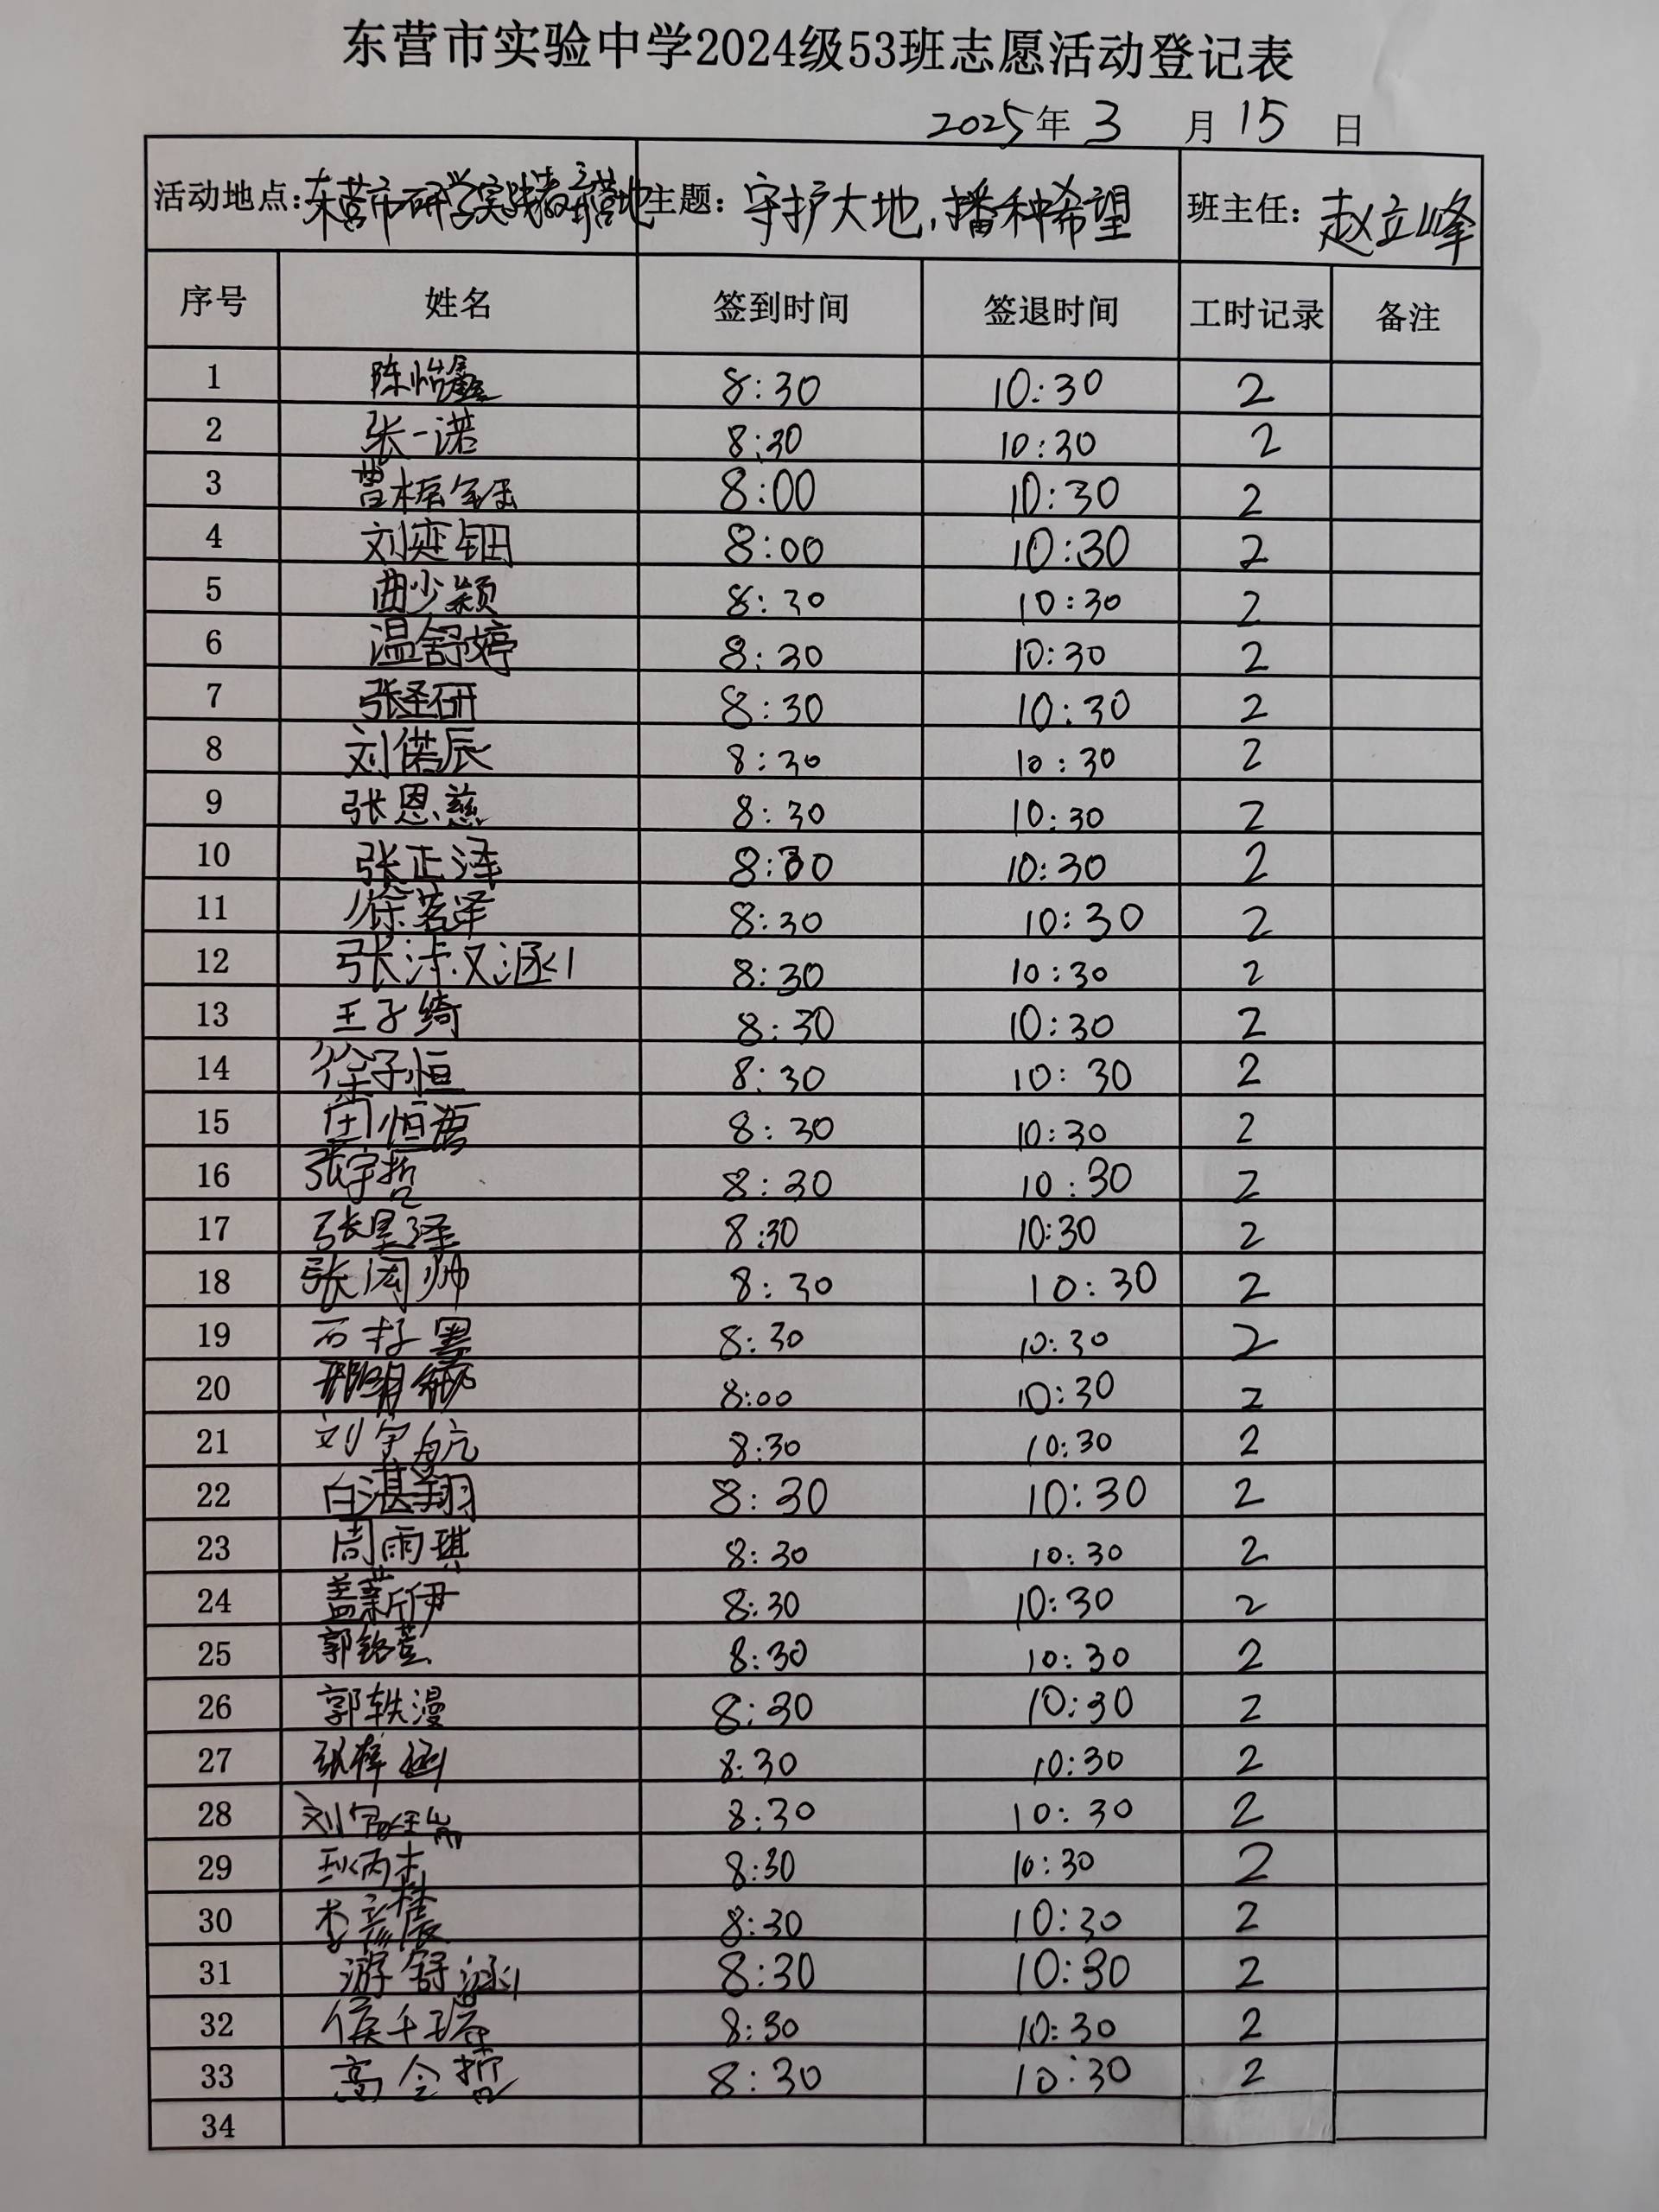 东营市实验中学2024级53班志愿活动登记表
2025年 3 月 15 日
活动地点:东营市研学实践教育营地 主题:守护大地,播种希望 班主任:赵立峰
序号 姓名 签到时间 签退时间 工时记录 备注
1 陈怡鑫 8:30 10:30 2
2 张一诺 8:30 10:30 2
3 曹 8:00 10:30 2
4 刘奕钿 8:00 10:30 2
5 曲少颖 8:30 10:30 2
6 温舒婷 8:30 10:30 2
7 张圣研 8:30 10:30 2
8 刘偌辰 8:30 10:30 2
9 张恩慈 8:30 10:30 2
10 张正泽 8:30 10:30 2
11 徐茗泽 8:30 10:30 2
12 张 涵 8:30 10:30 2
13 王子绮 8:30 10:30 2
14 徐子恒 8:30 10:30 2
15 周恒 8:30 10:30 2
16 张宇哲 8:30 10:30 2
17 张昊泽 8:30 10:30 2
18 张 帅 8:30 10:30 2
19 石梓墨 8:30 10:30 2
20 邢明 8:00 10:30 2
21 刘宇航 8:30 10:30 2
22 白湛翔 8:30 10:30 2
23 周雨琪 8:30 10:30 2
24 盖新伊 8:30 10:30 2
25 郭铭萱 8:30 10:30 2
26 郭轶漫 8:30 10:30 2
27 张梓涵 8:30 10:30 2
28 刘 8:30 10:30 2
29 8:30 10:30 2
30 李 8:30 10:30 2
31 游舒涵 8:30 10:30 2
32 侯千 8:30 10:30 2
33 高令哲 8:30 10:30 2
34